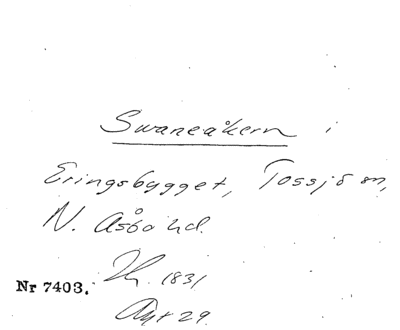 Swaneåkern i
Eringsbygget, Tossjö sn,
N. Åsbo hd.
1831
Nr 7403.
29.